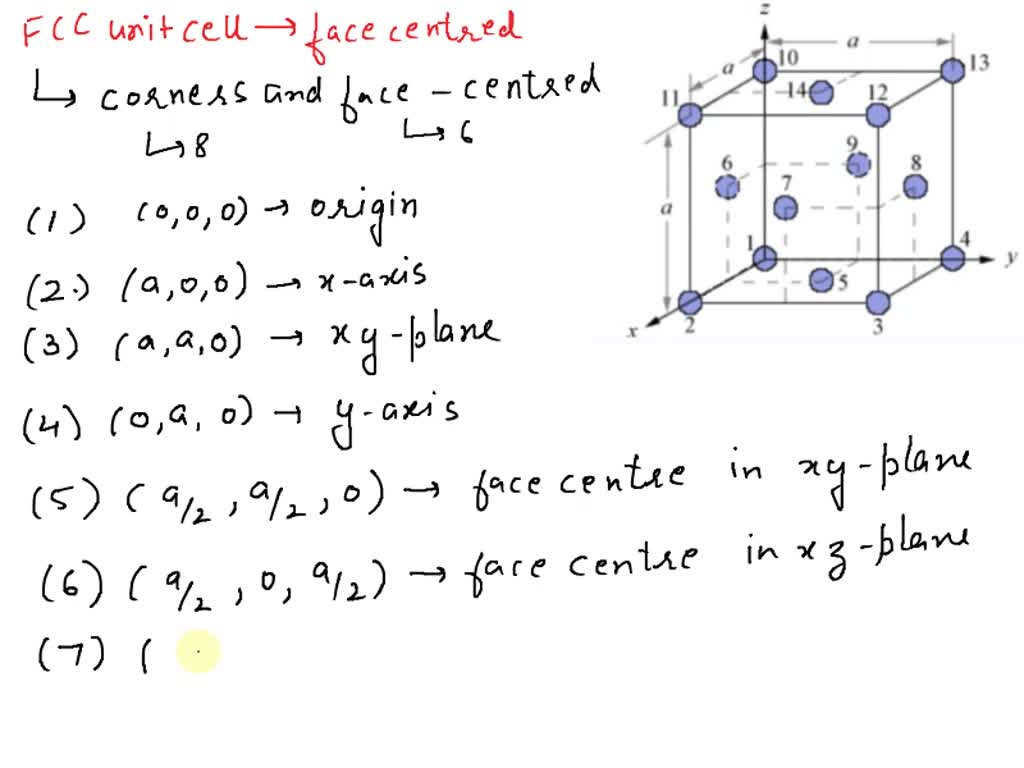 FCC unit cell → face centred
↳ corners and face - centred
↳ 8
↳ 6
(1) (0,0,0) → origin
(2.) (a,0,0) → x-axis
(3) (a,a,0) → xy-plane
(4) (0,a,0) → y-axis
(5) (a/2, a/2, 0) → face centre in xy-plane
(6) (a/2, 0, a/2) → face centre in xz-plane
(7) (
z
a
10
13
a
14
12
11
9
6
8
7
a
1
4
y
5
x
2
3